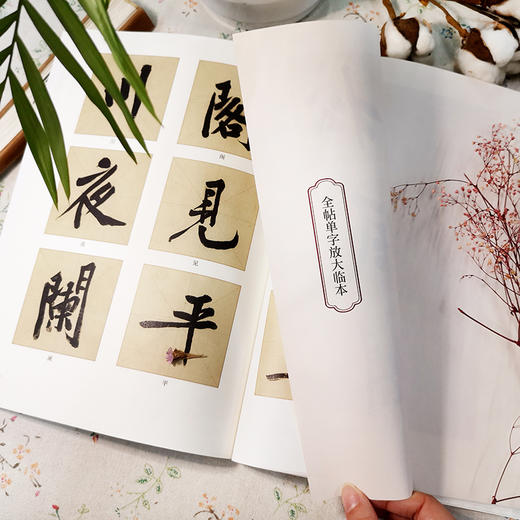 川
閣
夜
見
闌
平
全帖单字放大临本